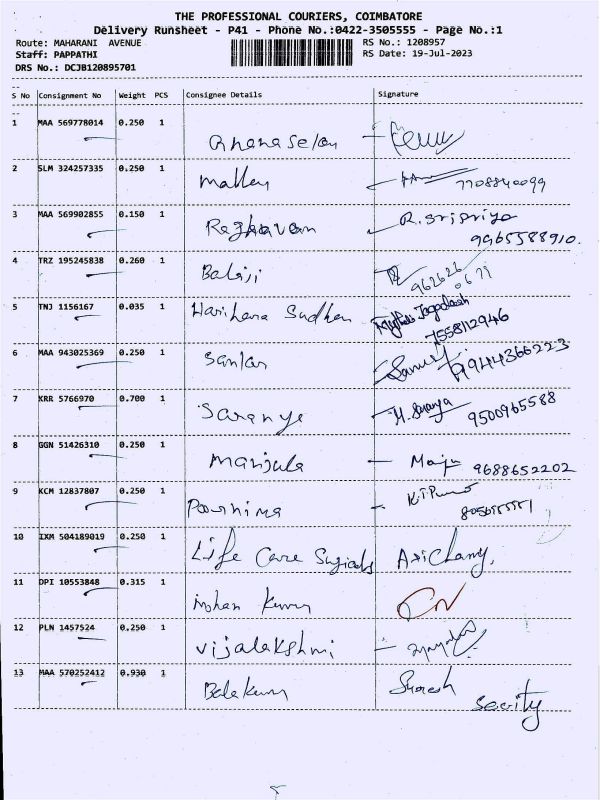 THE PROFESSIONAL COURIERS, COIMBATORE
Delivery Runsheet - P41 - Phone No.:0422-3505555 - Page No.:1
Route: MAHARANI AVENUE
RS No.: 1208957
Staff: PAPPATHI
RS Date: 19-Jul-2023
DRS No.: DCJB120895701
S No Consignment No Weight PCS Consignee Details Signature
1 MAA 569778014 0.250 1 Gnanaselan
2 SLM 324257335 0.250 1 7708840099
3 MAA 569902855 0.150 1 Raghavan R.Sripriya
9965588910.
4 TRZ 195245838 0.260 1 Balaji 962626
0671
5 TNJ 1156167 0.035 1 Harihara Sudhan
7558112946
6 MAA 943025369 0.250 1 Sankar 9944366223
7 KRR 5766970 0.700 1 Saranya M. Saranya 9500965588
8 GGN 51426310 0.250 1 Manjula - Manju 9688652202
9 KCM 12837807 0.250 1 Poornima
10 IXM 504189019 0.250 1 Life Care Sugicals
11 DPI 10553848 0.315 1 Mohan Kumar
12 PLN 1457524 0.250 1 Vijalakshmi
13 MAA 570252412 0.930 1 Balakumar Suresh